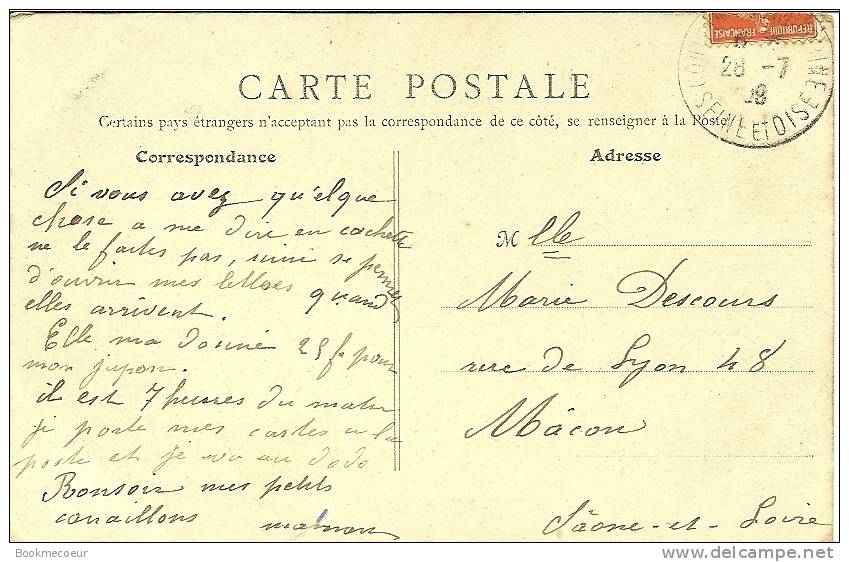 REPUBLIQUE FRANÇAISE
28 -7
08
SEINE ET OISE
CARTE POSTALE
Certains pays étrangers n'acceptant pas la correspondance de ce côté, se renseigner à la Poste
Correspondance
Si vous avez qu'elque
chose a me dire en cachette
ne le faites pas, mimi se permet
d'ouvrir mes lettres quand
elles arrivent.
Elle ma donné 25 f pour
mon jupon.
il est 7 heures du matin
je porte mes cartes a la
poste et je va au dodo
Bonsoir mes petits
canaillons maman
Adresse
Mlle
Marie Descours
rue de Lyon 48
Mâcon
Sâone-et-Loire
Bookmecoeur
www.delcampe.net